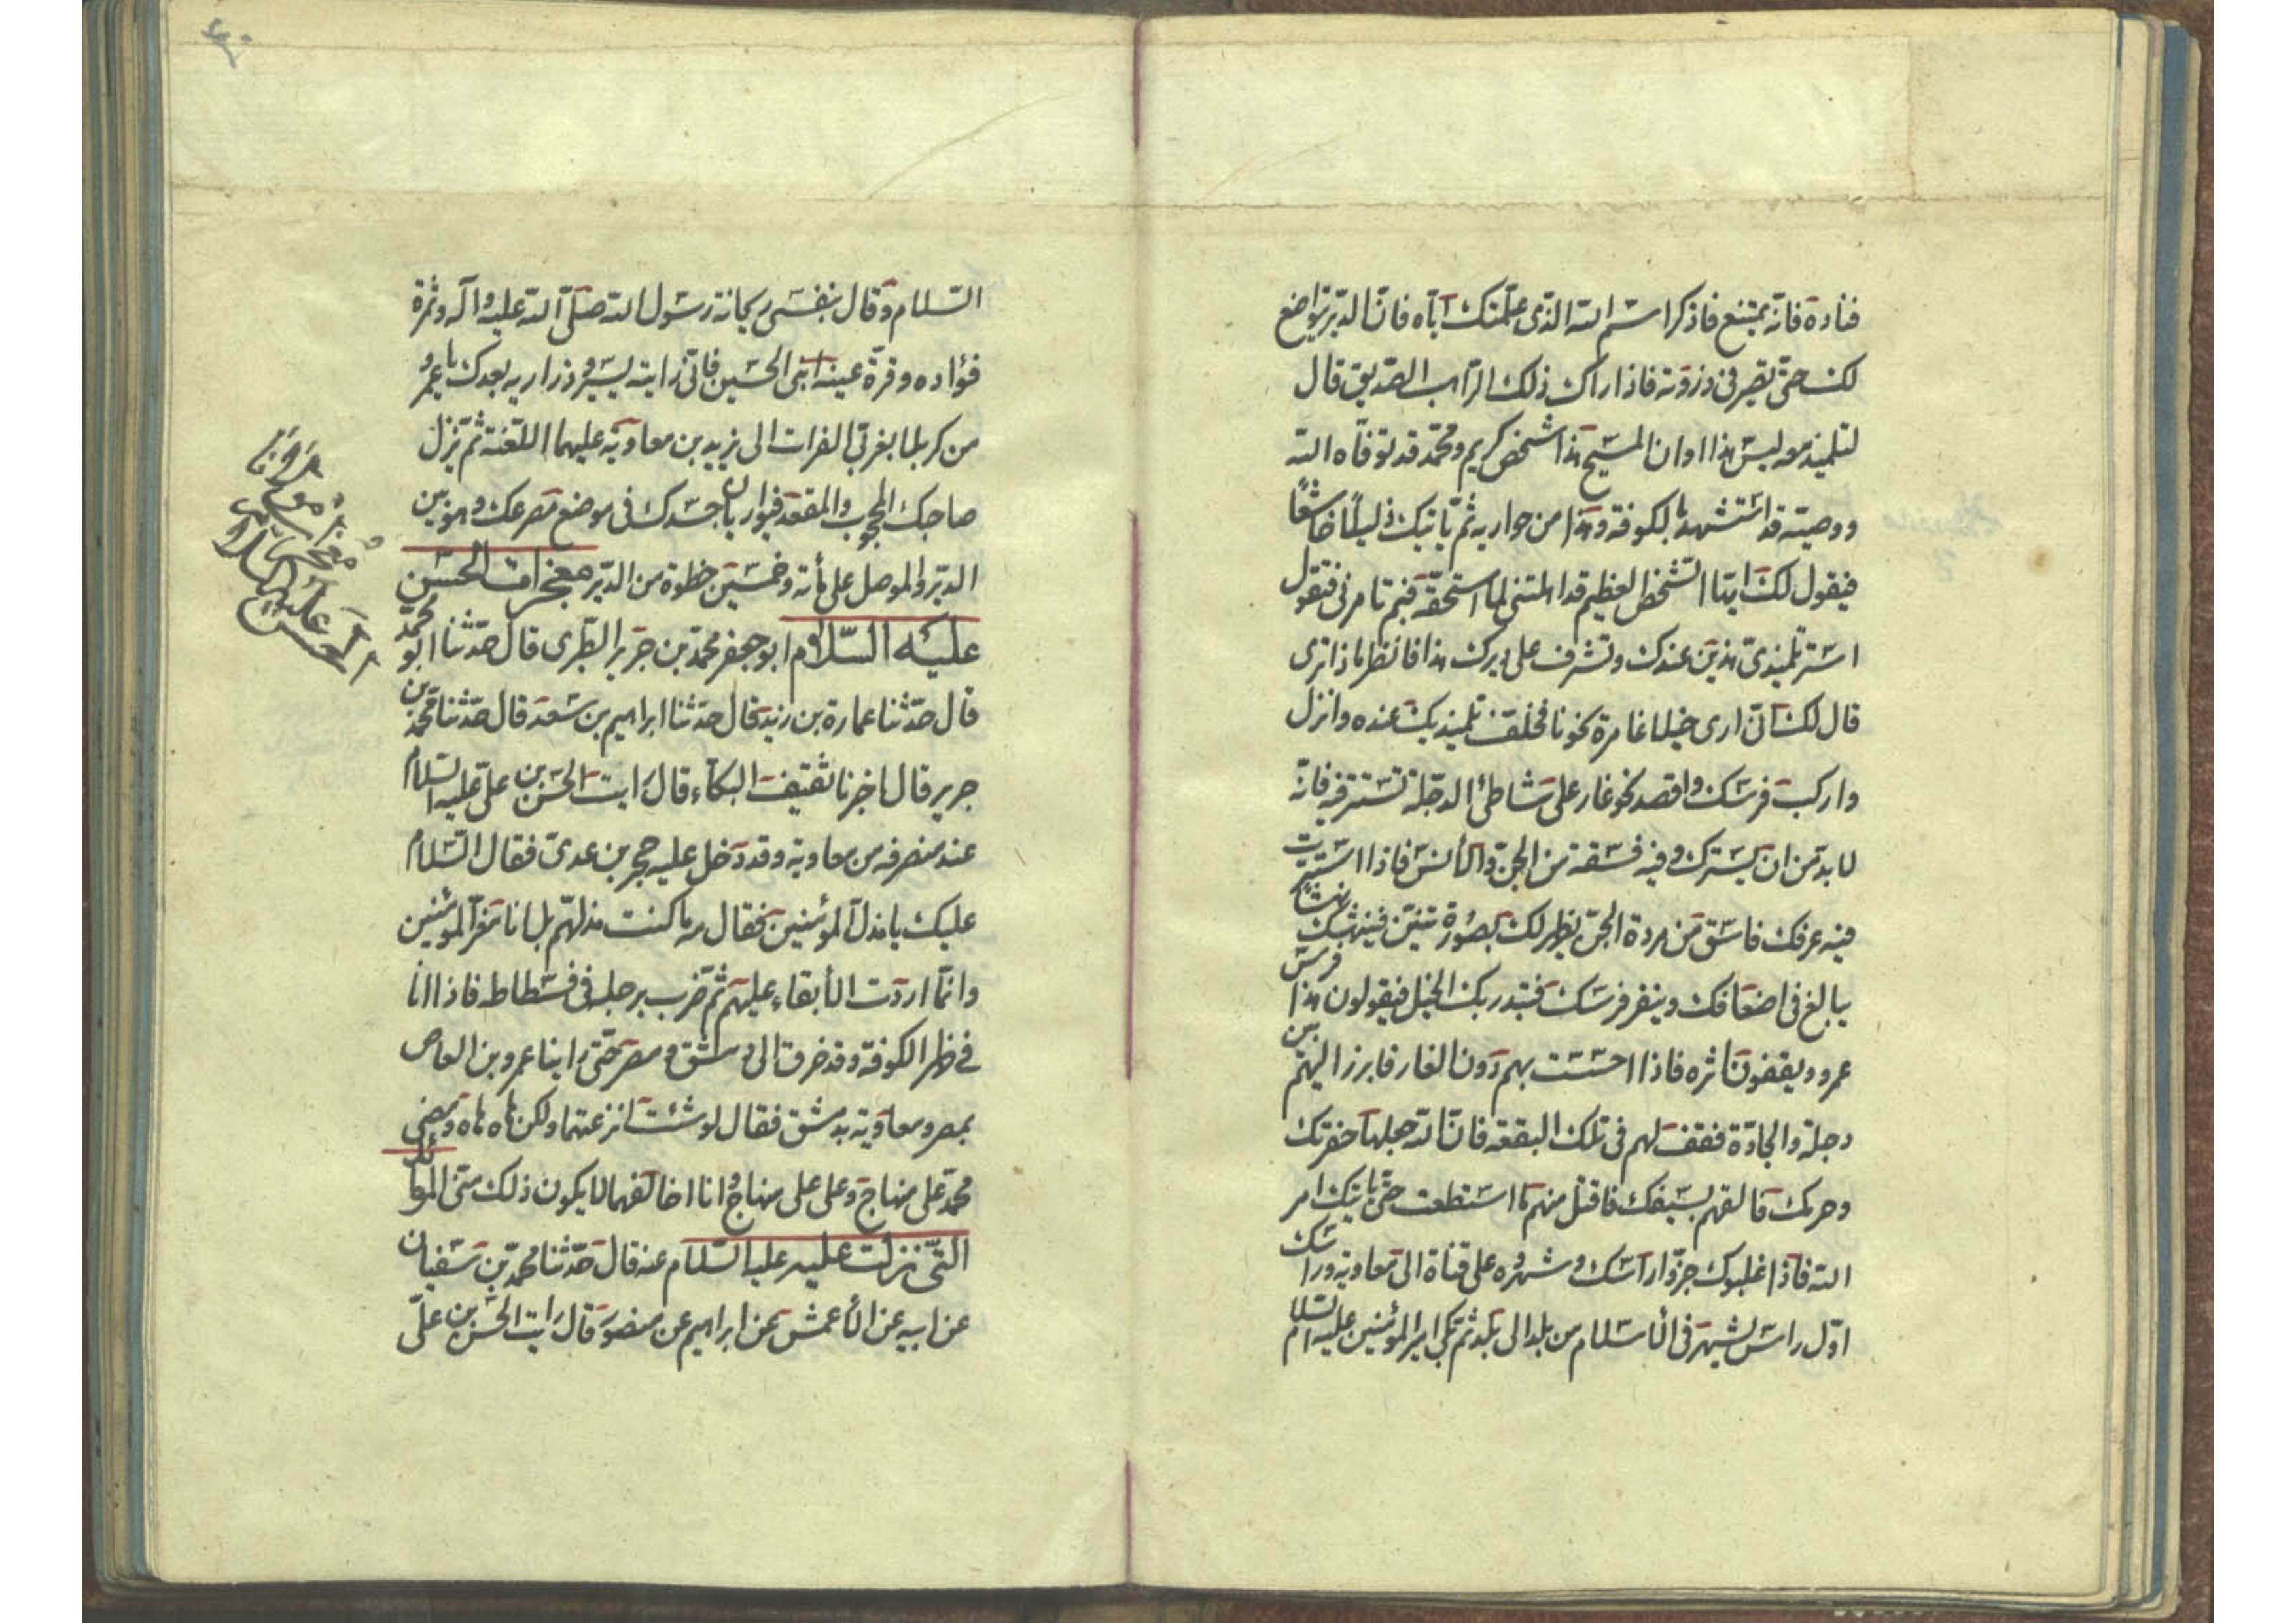 فناده فانه يمتنع فاذكر اسم الله الذى علمتك اياه فان الدير يتواضع
لك حتى تصير فى ذروته فاذا راك ذلك الراهب الصديق قال
لتلميذ معه ليس هذا اوان المسيح هذا شخص كريم ومحمد قد توفاه الله
ووصيه قد استشهد بالكوفة وهذا من حواريه ثم ياتيك ذليلا خاشعا
فيقول لك ايها الشخص العظيم قد اهلتنى لما استحقه فبم تامرنى فتقول
استر تلميذى هذين عندك وتشرف على ديرك هذا فانظر ماذا ترى
قال لك انى ارى خيلا غامرة نحونا فخلف تلميذيك عنده وانزل
واركب فرسك واقصد نحو غار على شاطئ الدجلة تستتر فيه فانه
لا بد من ان يسترك وفيه فسقة من الجن والانس فاذا استترت
فيه عرفك فاسق من مردة الجن يظهر لك بصورة تنين فينهشك نهشا
يبالغ فى اضعافك وينفر فرسك فتبدر بك الخيل فيقولون هذا فرس
عمرو ويقفون اثره فاذا احسست بهم دون الغار فابرز اليهم بين
دجلة والجادة فقف لهم فى تلك البقعة فان الله جعلها حفرتك
وحرمك فالقهم بسيفك فاقتل منهم ما استطعت حتى ياتيك امر
الله فاذا غلبوك جزوا راسك وشهروه على قناة الى معاوية وراسك
اول راس يشهر فى الاسلام من بلد الى بلد ثم بكى امير المؤمنين عليه السلام
۴۰
السلام وقال بنفسى ريحانة رسول الله صلى الله عليه واله وثمرة
فؤاده وقرة عينه ابنى الحسين فانى رايته يسير وذراريه بعدك يا عمرو
من كربلا بغربى الفرات الى يزيد بن معاوية عليهما اللعنة ثم ينزل
صاحبك المحجوب والمقعد فيواريان جسدك فى موضع مصرعك وهو بين
الدير والموصل على مأئة وخمسين خطوة من الدير معجزات الحسن
عليه السلام ابو جعفر محمد بن جرير الطبرى قال حدثنا ابو محمد
قال حدثنا عمارة بن زيد قال حدثنا ابراهيم بن سعد قال حدثنا محمد بن
جرير قال اخبرنا ثقيف البكاء قال رايت الحسن بن على عليه السلام
عند منصرفه من معاوية وقد دخل عليه حجر بن عدى فقال السلام
عليك يا مذل المؤمنين فقال مه ما كنت مذلهم بل انا معز المؤمنين
وانما اردت الابقاء عليهم ثم ضرب برجله فى فسطاطه فاذا انا
فى ظهر الكوفة وقد خرق الى دمشق ومصر حتى راينا عمرو بن العاص
بمصر ومعاوية بدمشق فقال لو شئت لنزعتهما ولكن هاه هاه ومضى
محمد على منهاج وعلى على منهاج وانا اخالفهما لا يكون ذلك منى الموائد
التى نزلت عليه عليه السلام عنه قال حدثنا محمد بن سفيان
عن ابيه عن الأعمش عن ابراهيم عن منصور قال رايت الحسن بن على